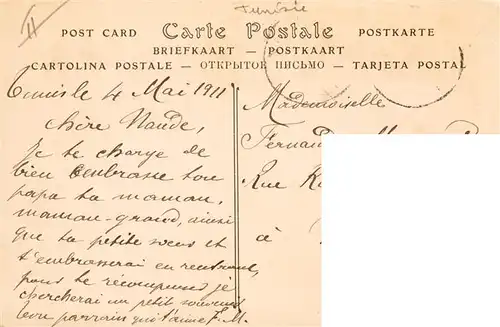 Tunisie
POST CARD Carte Postale POSTKARTE
BRIEFKAART — POSTKAART
CARTOLINA POSTALE — ОТКРЫТОЕ ПИСЬМО — TARJETA POSTAL
Tunis le 4 Mai 1911
chère Naude,
je te charge de
bien embrasse ton
papa ta maman,
maman-grand, ainsi
que ta petite soeur et
t'embrasserai en rentrant,
pour te récompenser je
chercherai un petit souvenir
ton parrain qui t'aime F.M.
Mademoiselle
Fernan
Rue
à